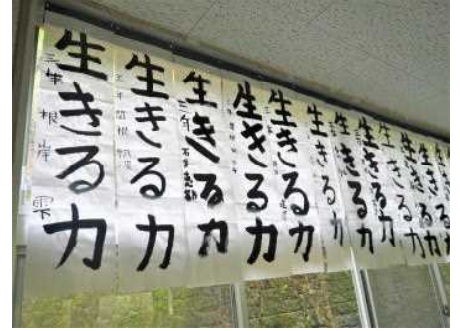 生きる力
三年 根岸 雫
生きる力
三年 関根
生きる力
三年
生きる力
生きる力
生きる力
生きる力
生きる力
生きる力
生きる力
生きる力